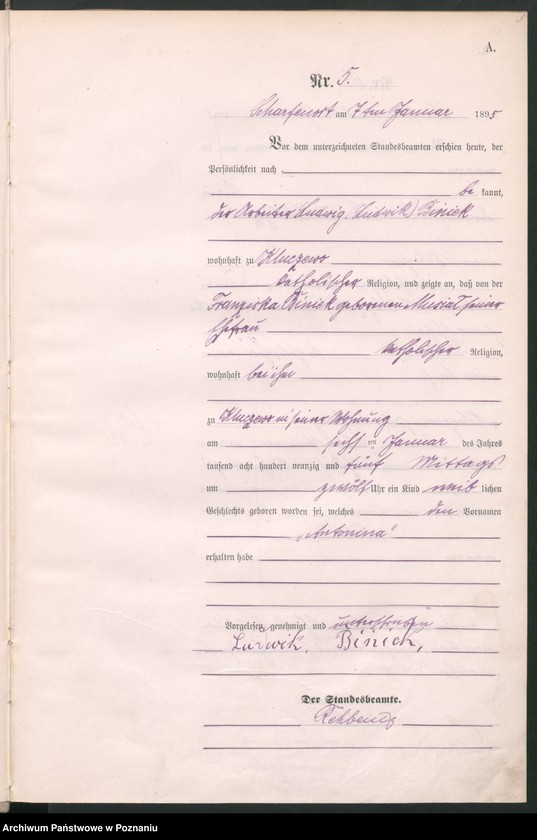 A.
Nr. 5.
Scharfenort am 7ten Januar 1895
Vor dem unterzeichneten Standesbeamten erschien heute, der
Persönlichkeit nach
be kannt,
der Arbeiter Ludwig (Ludwik) Biniek
wohnhaft zu Kluczewo
katholischer Religion, und zeigte an, daß von der
Franziska Biniek geborenen seiner
Ehefrau
katholischer Religion,
wohnhaft bei ihm
zu Kluczewo in seiner Wohnung
am sechsten Januar des Jahres
tausend acht hundert neunzig und fünf Mittags
um zwölf Uhr ein Kind weib lichen
Geschlechts geboren worden sei, welches den Vornamen
„Antonina“
erhalten habe
Vorgelesen, genehmigt und unterschrieben
Ludwik, Biniek,
Der Standesbeamte.
Archiwum Państwowe w Poznaniu